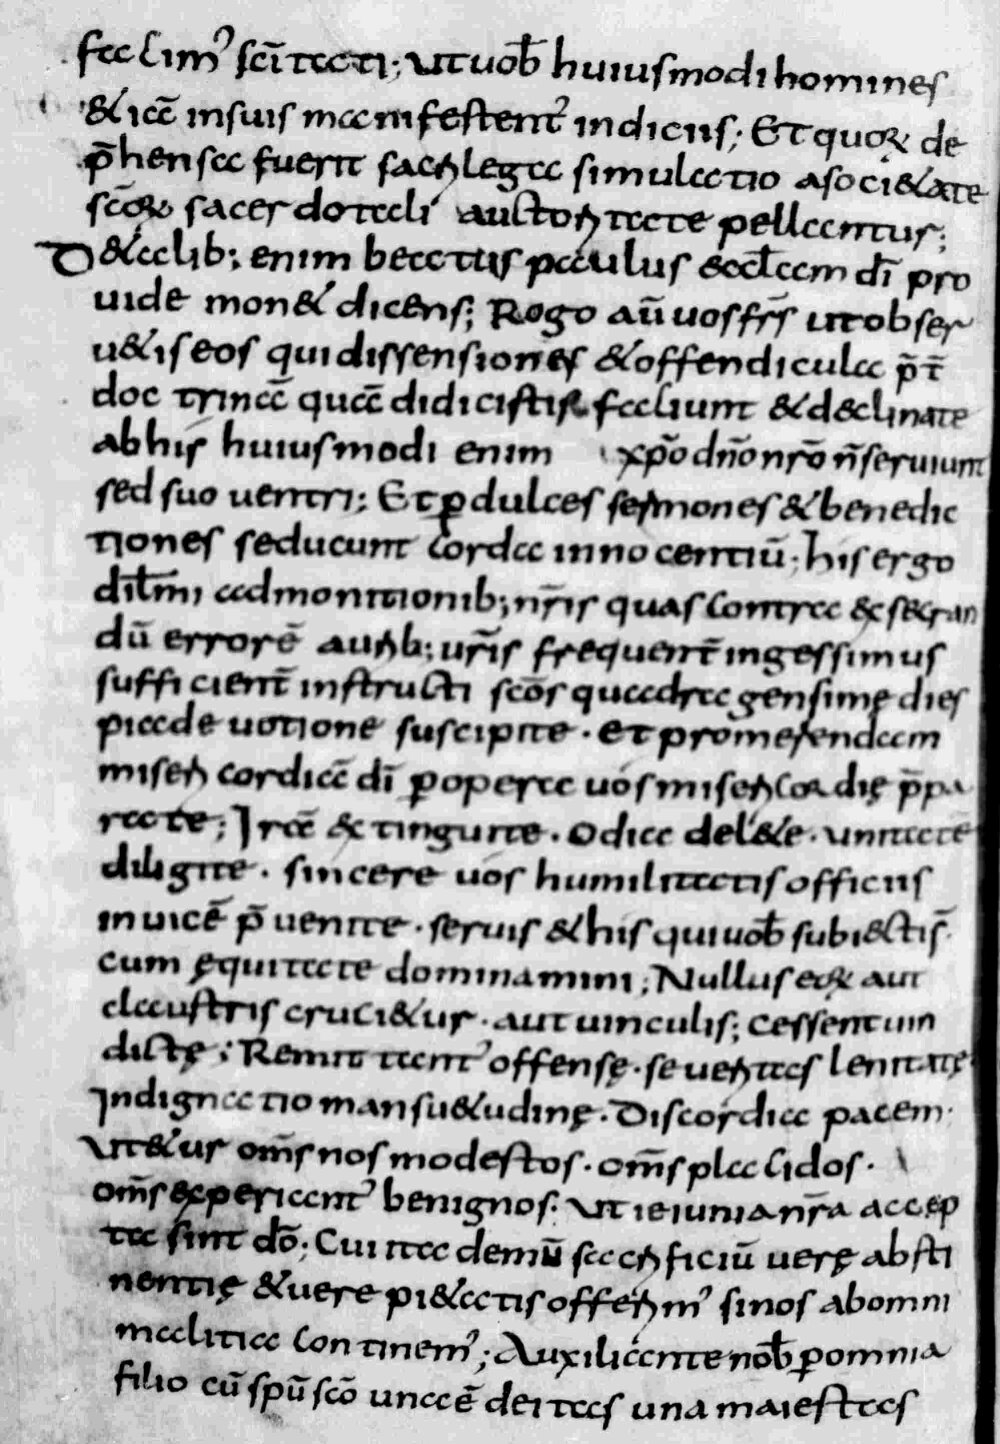 facim᾽ scītati; ut uob̄ huiusmodi homines
& iā insuis manifestent᾽ indiciis; Et quoꝝ de
p̄hensa fuerit sacrilega simulatio asoci&ate
sc̄oꝝ sacerdotali auctoritate pellantur;
D& alib; enim beatus paulus eccl̄am dī pro
uide mon& dicens; Rogo aū uos fr̄s ut obser
u&is eos qui dissensiones & offendicula p̄t̄
doctrinā quā didicistis faciunt & declinate
ab his huiusmodi enim xp̄o dn̄o nr̄o n̄ seruiunt
sed suo uentri; Et ꝑ dulces sermones & benedic
tiones seducunt corda innocentiū; his ergo
dil̄mi admonitionib; nr̄is quas contra exsecran
dū errorē aurib; ur̄is frequent̄ ingessimus
sufficient̄ instructi sc̄os quadragensimę dies
pia deuotione suscipite. et promerendam
misericordiā dī ꝑ opera uos misericordię p̄pa
rate; Irā extinguite. Odia del&e. unitatē
diligite. sincere uos humilitatis officiis
inuicē p̄uenite. seruis & his qui uob̄ subiectis̄.
cum ęquitate dominamini; Nullus eoꝝ aut
claustris cruci&ur. aut uinculis; cessent uin
dictę; Remittant᾽ offensę. seueritas lenitatę
Indignatio mansu&udinę. Discordia pacem.
Ut&ur om̄s nos modestos. om̄s placidos.
om̄s experiant᾽ benignos. Ut ieiunia nr̄a accep
ta sint dō; Cui ita demū sacrificiū uerę absti
nentię & uere pi&atis offerim᾽ si nos ab omni
malitia continem᾽; Auxiliante nob̄ ꝑ omnia
filio cū spū sc̄o uncē deitas una maiestas